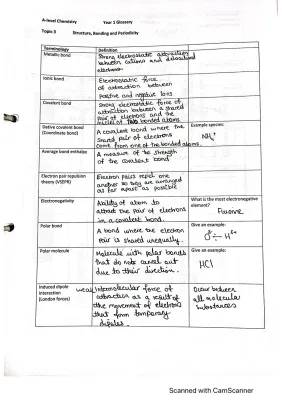 A-level Chemistry Year 1 Glossary
Topic 3 Structure, Bonding and Periodicity
Terminology Definition
Metallic bond
Strong electrostatic attraction
between cations and delocalised
electrons
Ionic bond
Electrostatic force
of attraction between
positive and negative ions
Covalent bond
Strong electrostatic force of
attraction between a shared
pair of electrons and the
nuclei of two bonded atoms.
Dative covalent bond
(Coordinate bond)
A covalent bond where the
shared pair of electrons
come from one of the bonded atoms.
Example species:
NH₄⁺
Average bond enthalpy
A measure of the strength
of the covalent bond
Electron pair repulsion
theory (VSEPR)
Electron pairs repel one
another so they are arranged
as far apart as possible
Electronegativity
Ability of atom to
attract the pair of electrons
in a covalent bond.
What is the most electronegative
element?
Fluorine
Polar bond
A bond where the electron
pair is shared unequally.
Give an example:
Polar molecule
Molecule with polar bonds
that do not cancel out
due to their direction.
Give an example:
HCl
Induced dipole
interaction
(London forces)
weak Intermolecular force of
attraction as a result of
the movement of electrons
that form temporary
dipoles.
Occur between
all molecular
substances
Scanned with CamScanner